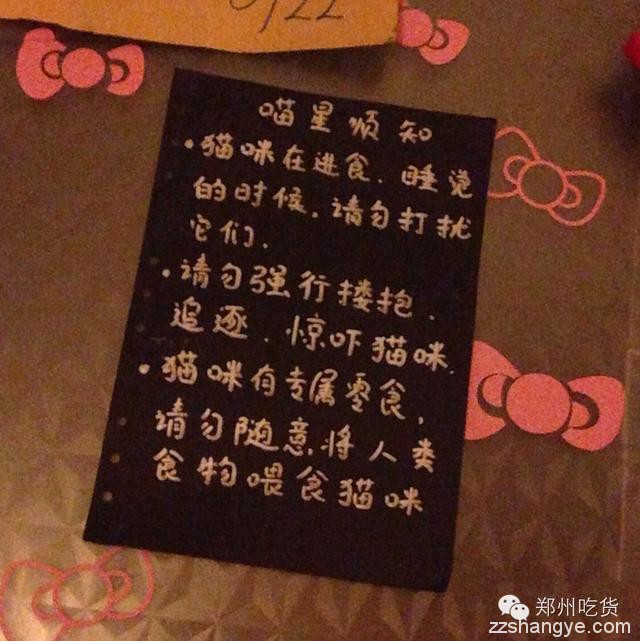 6/22
喵星须知
·猫咪在进食、睡觉
的时候,请勿打扰
它们.
·请勿强行搂抱、
追逐、惊吓猫咪.
·猫咪有专属零食,
请勿随意将人类
食物喂食猫咪
郑州吃货
zzshangye.com